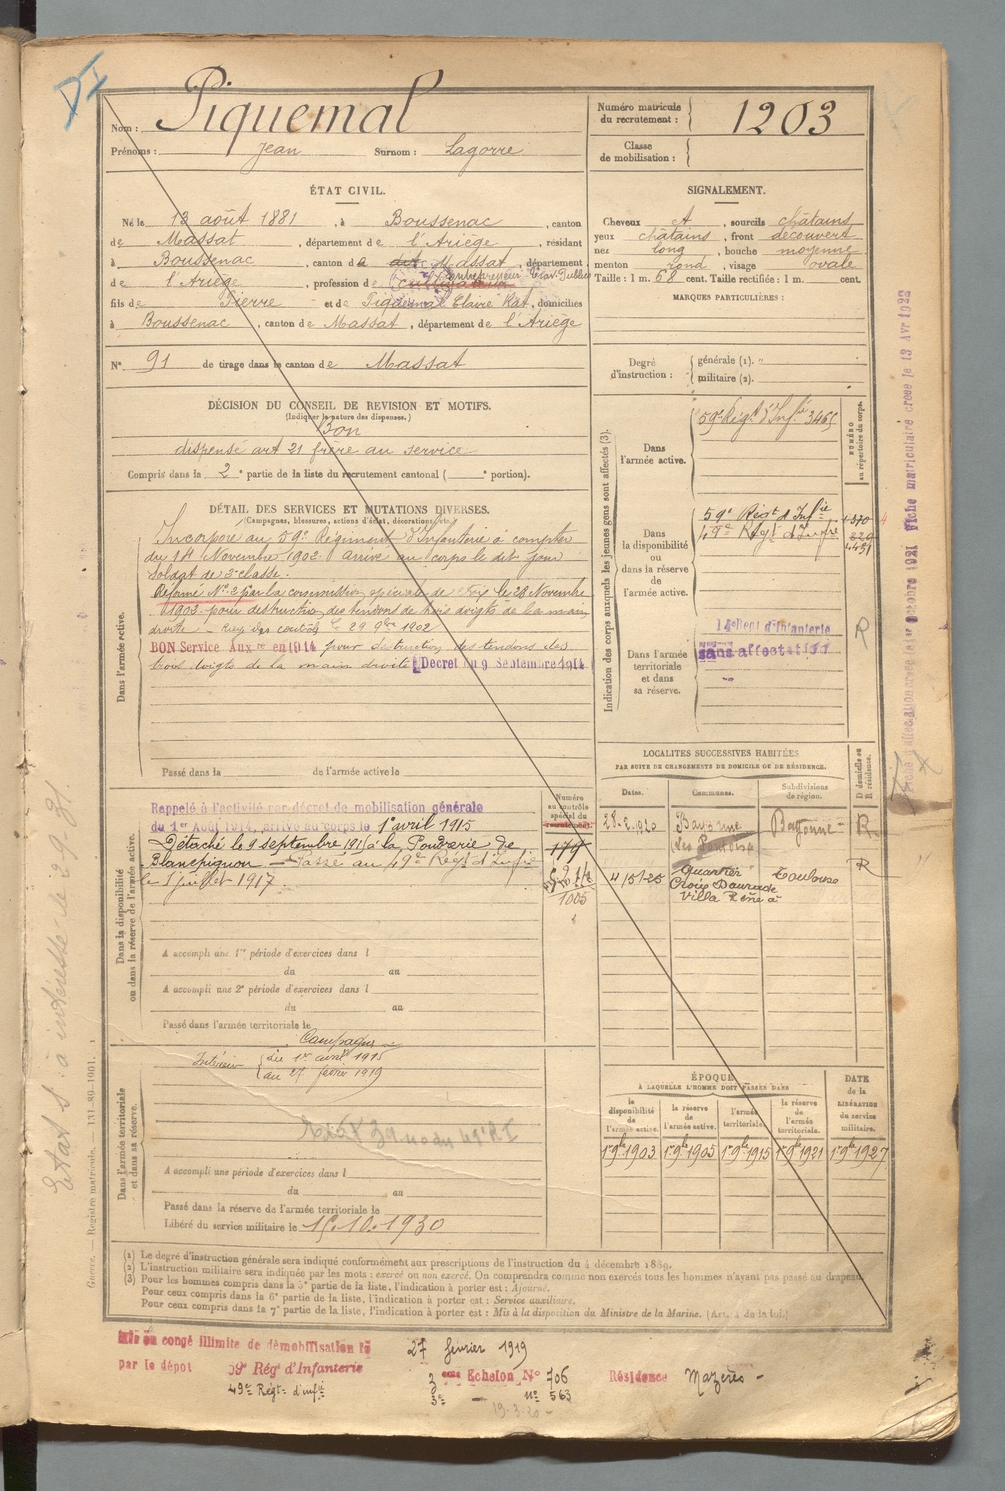 Piquemal
Nom :
Prénoms : Jean Surnom : Lagorre
Numéro matricule du recrutement : 1203
Classe de mobilisation :
ÉTAT CIVIL.
Né le 13 août 1881, à Boussenac, canton
de Massat, département de l'Ariège, résidant
à Boussenac, canton de Massat, département
de l'Ariège, profession de cultivateur entrepreneur
fils de Pierre et de Piquemal Claire Rat, domiciliés
à Boussenac, canton de Massat, département de l'Ariège
N° 91 de tirage dans le canton de Massat
SIGNALEMENT.
Cheveux , sourcils châtains
yeux châtains, front découvert
nez long, bouche moyenne
menton rond, visage ovale
Taille : 1 m. 68 cent. Taille rectifiée : 1 m. cent.
MARQUES PARTICULIÈRES :
Degré d'instruction : générale (1). "
militaire (2).
DÉCISION DU CONSEIL DE REVISION ET MOTIFS.
(Indiquer la nature des dispenses.)
Bon
dispensé art 21 frère au service
Compris dans la 2e partie de la liste du recrutement cantonal ( e portion).
DÉTAIL DES SERVICES ET MUTATIONS DIVERSES.
(Campagnes, blessures, actions d'éclat, décorations, etc.)
Dans l'armée active.
Incorporé au 59e Régiment d'Infanterie à compter
du 14 Novembre 1902. Arrivé au corps le dit jour
Soldat de 2e classe.
Réformé N° 2 par la commission spéciale de Foix le 28 Novembre
1902 pour destruction des tendons de trois doigts de la main
droite – Rayé des contrôles le 29 9bre 1902
BON Service Auxre en 1914 pour destruction des tendons des
trois doigts de la main droite Decret du 9 Septembre 1914
Passé dans la de l'armée active le
Indication des corps auxquels les jeunes gens sont affectés (3).
NUMÉRO au répertoire du corps.
Dans l'armée active.
59e Régt d'Infie 3465
Dans la disponibilité ou dans la réserve de l'armée active.
59e Régt d'Infie 1370
49e Régt d'Infie
Dans l'armée territoriale et dans sa réserve.
sans affectation
R
LOCALITÉS SUCCESSIVES HABITÉES
PAR SUITE DE CHANGEMENTS DE DOMICILE OU DE RÉSIDENCE.
Dates. Communes. Subdivisions de région. D domicile ou R résidence.
28-2-1920 Bayonne Bayonne R
4/5/25 Quartier Croix Daurade Villa Toulouse R
Dans la disponibilité ou dans la réserve de l'armée active.
Numéro au contrôle spécial du recrutement.
Rappelé à l'activité par décret de mobilisation générale
du 1er Août 1914, arrivé au corps le 1er avril 1915
Détaché le 9 septembre 191 à la Poudrerie de
Blancpignon – Passé au 49e Régt d'Infie
le 1 juillet 1917
1005
A accompli une 1re période d'exercices dans l
du au
A accompli une 2e période d'exercices dans l
du au
Passé dans l'armée territoriale le
Dans l'armée territoriale et dans sa réserve.
Campagne
Intérieur du 1er avril 1915
au 27 février 1919
A accompli une période d'exercices dans l
du au
Passé dans la réserve de l'armée territoriale le
Libéré du service militaire le 15.10.1930
ÉPOQUE
À LAQUELLE L'HOMME DOIT PASSER DANS
la disponibilité de l'armée active. la réserve de l'armée active. l'armée territoriale. la réserve de l'armée territoriale. DATE de la LIBÉRATION du service militaire.
1er 9bre 1903 1er 9bre 1905 1er 9bre 1915 1er 9bre 1921 1er 9bre 1927
(1) Le degré d'instruction générale sera indiqué conformément aux prescriptions de l'instruction du 4 décembre 1889.
(2) L'instruction militaire sera indiquée par les mots : exercé ou non exercé. On comprendra comme non exercés tous les hommes n'ayant pas passé au drapeau.
(3) Pour les hommes compris dans la 5e partie de la liste, l'indication à porter est : Ajourné.
Pour ceux compris dans la 6e partie de la liste, l'indication à porter est : Service auxiliaire.
Pour ceux compris dans la 7e partie de la liste, l'indication à porter est : Mis à la disposition du Ministre de la Marine. (Art. 4 de la loi.)
Mis en congé illimité de démobilisation le 27 février 1919
par le dépot 59e Régt d'Infanterie 3eme Echelon N° 706 Résidence Mazères –
49e Régt d'infie 3e — n° 563
19-3-20 –
Guerre. — Registre matricule. — 131-89-1901.
Fiche matriculaire créée le 13 Avr 1923